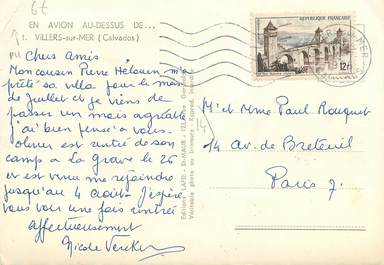 6€
EN AVION AU-DESSUS DE...
1. VILLERS-sur-MER (Calvados)
Chers amis
Mon cousin Pierre Hélouin m'a
prêté sa villa pour le mois
de Juillet et je viens de
passer un mois agréable
j'ai bien pensé à vous.
Olivier est rentré de son
camp à La Grave le 26
et est venu me rejoindre
jusqu'au 4 Août. J'espère
vous voir une fois rentrés
Affectueusement
Nicole
Editions LAPIE - St-MAUR
Véritable photo au bromure
REPUBLIQUE FRANÇAISE
12f
14
M. et Mme Paul Rouquet
14 av. de Breteuil
Paris 7.